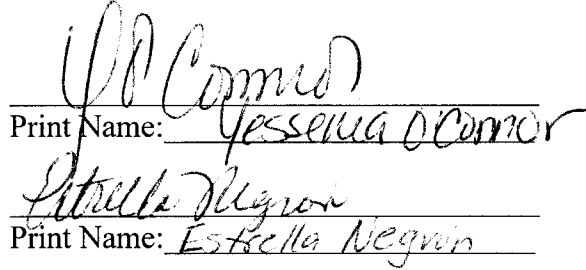 YO Connor
Print Name: Yessenia O'Connor
Estrella Negron
Print Name: Estrella Negron